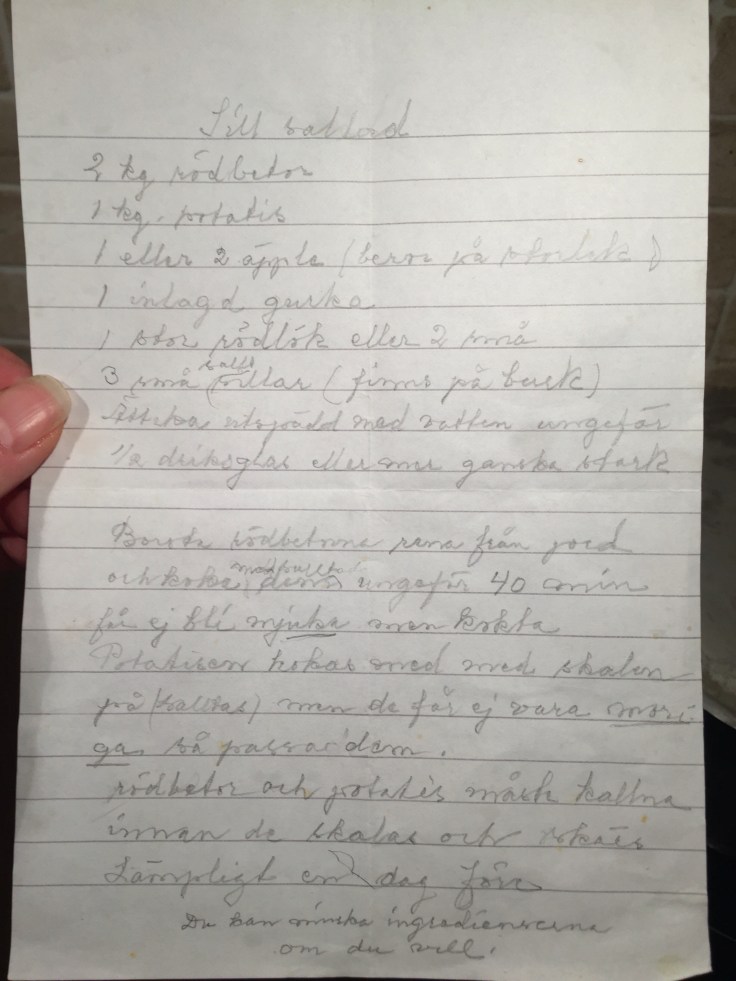 Sill sallad
2 kg rödbetor
1 kg. potatis
1 eller 2 äpple (beror på storlek)
1 inlagd gurka
1 stor rödlök eller 2 små
salt
3 små sillar (finns på burk)
Ättika utspädd med vatten ungefär
1/2 driksglas eller mer ganska stark
Borsta rödbetorna rena från jord
med salt
och koka dem ungefär 40 min
får ej bli mjuka men kokta
Potatisen kokas med med skalen
på (saltas) men de får ej vara mosi-
ga. så passa dem.
rödbetor och potatis måste kallna
innan de skalas och
Lämpligt en dag före
Du kan minska ingredienserna
om du vill.